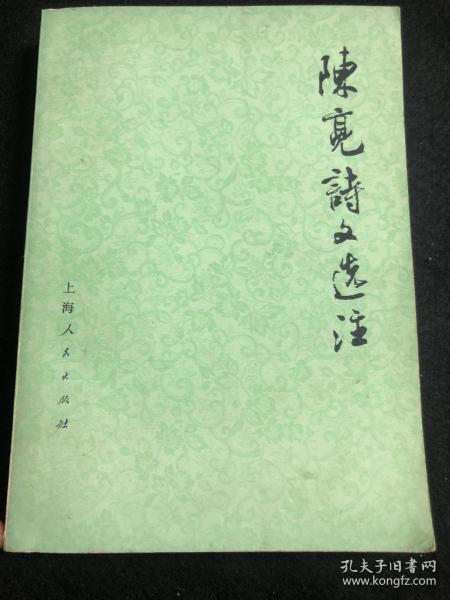 陳亮詩文选注
上海人民出版社
孔夫子旧书网
www.kongfz.com